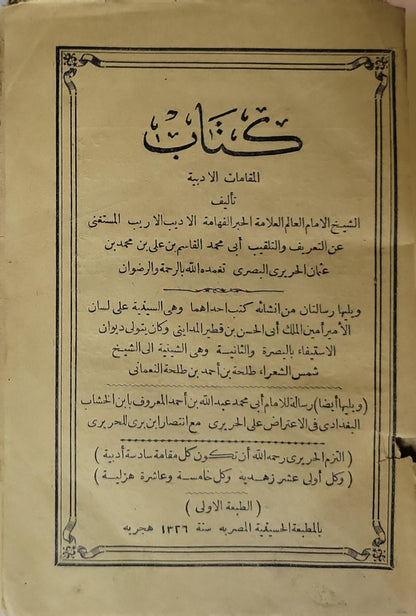 كتاب
المقامات الادبية
تأليف
الشيخ الامام العالم العلامة الحبر الفهامة الاديب الاريب المستغنى
عن التعريف والتلقيب أبى محمد القاسم بن على بن محمد بن
عثمان الحريرى البصرى تغمده الله بالرحمة والرضوان
ويليها رسالتان من انشائه كتب احداهما وهى السينية على لسان
الأمير أمين الملك أبى الحسن بن فطير المداينى وكان يتولى ديوان
الاستيفاء بالبصرة والثانية وهى الشينية الى الشيخ
شمس الشعراء طلحة بن أحمد بن طلحة النعمانى
(ويليها أيضا) رسالة للامام أبى محمد عبد الله بن أحمد المعروف بابن الخشاب
البغدادى فى الاعتراض على الحريرى مع انتصار ابن برى للحريرى
(التزم الحريرى رحمه الله أن تكون كل مقامة سادسة أدبية)
(وكل أولى عشر زهديه وكل خامسة وعاشرة هزلية)
(الطبعة الاولى)
بالمطبعة الحسينية المصريه سنة ١٣٢٦ هجريه